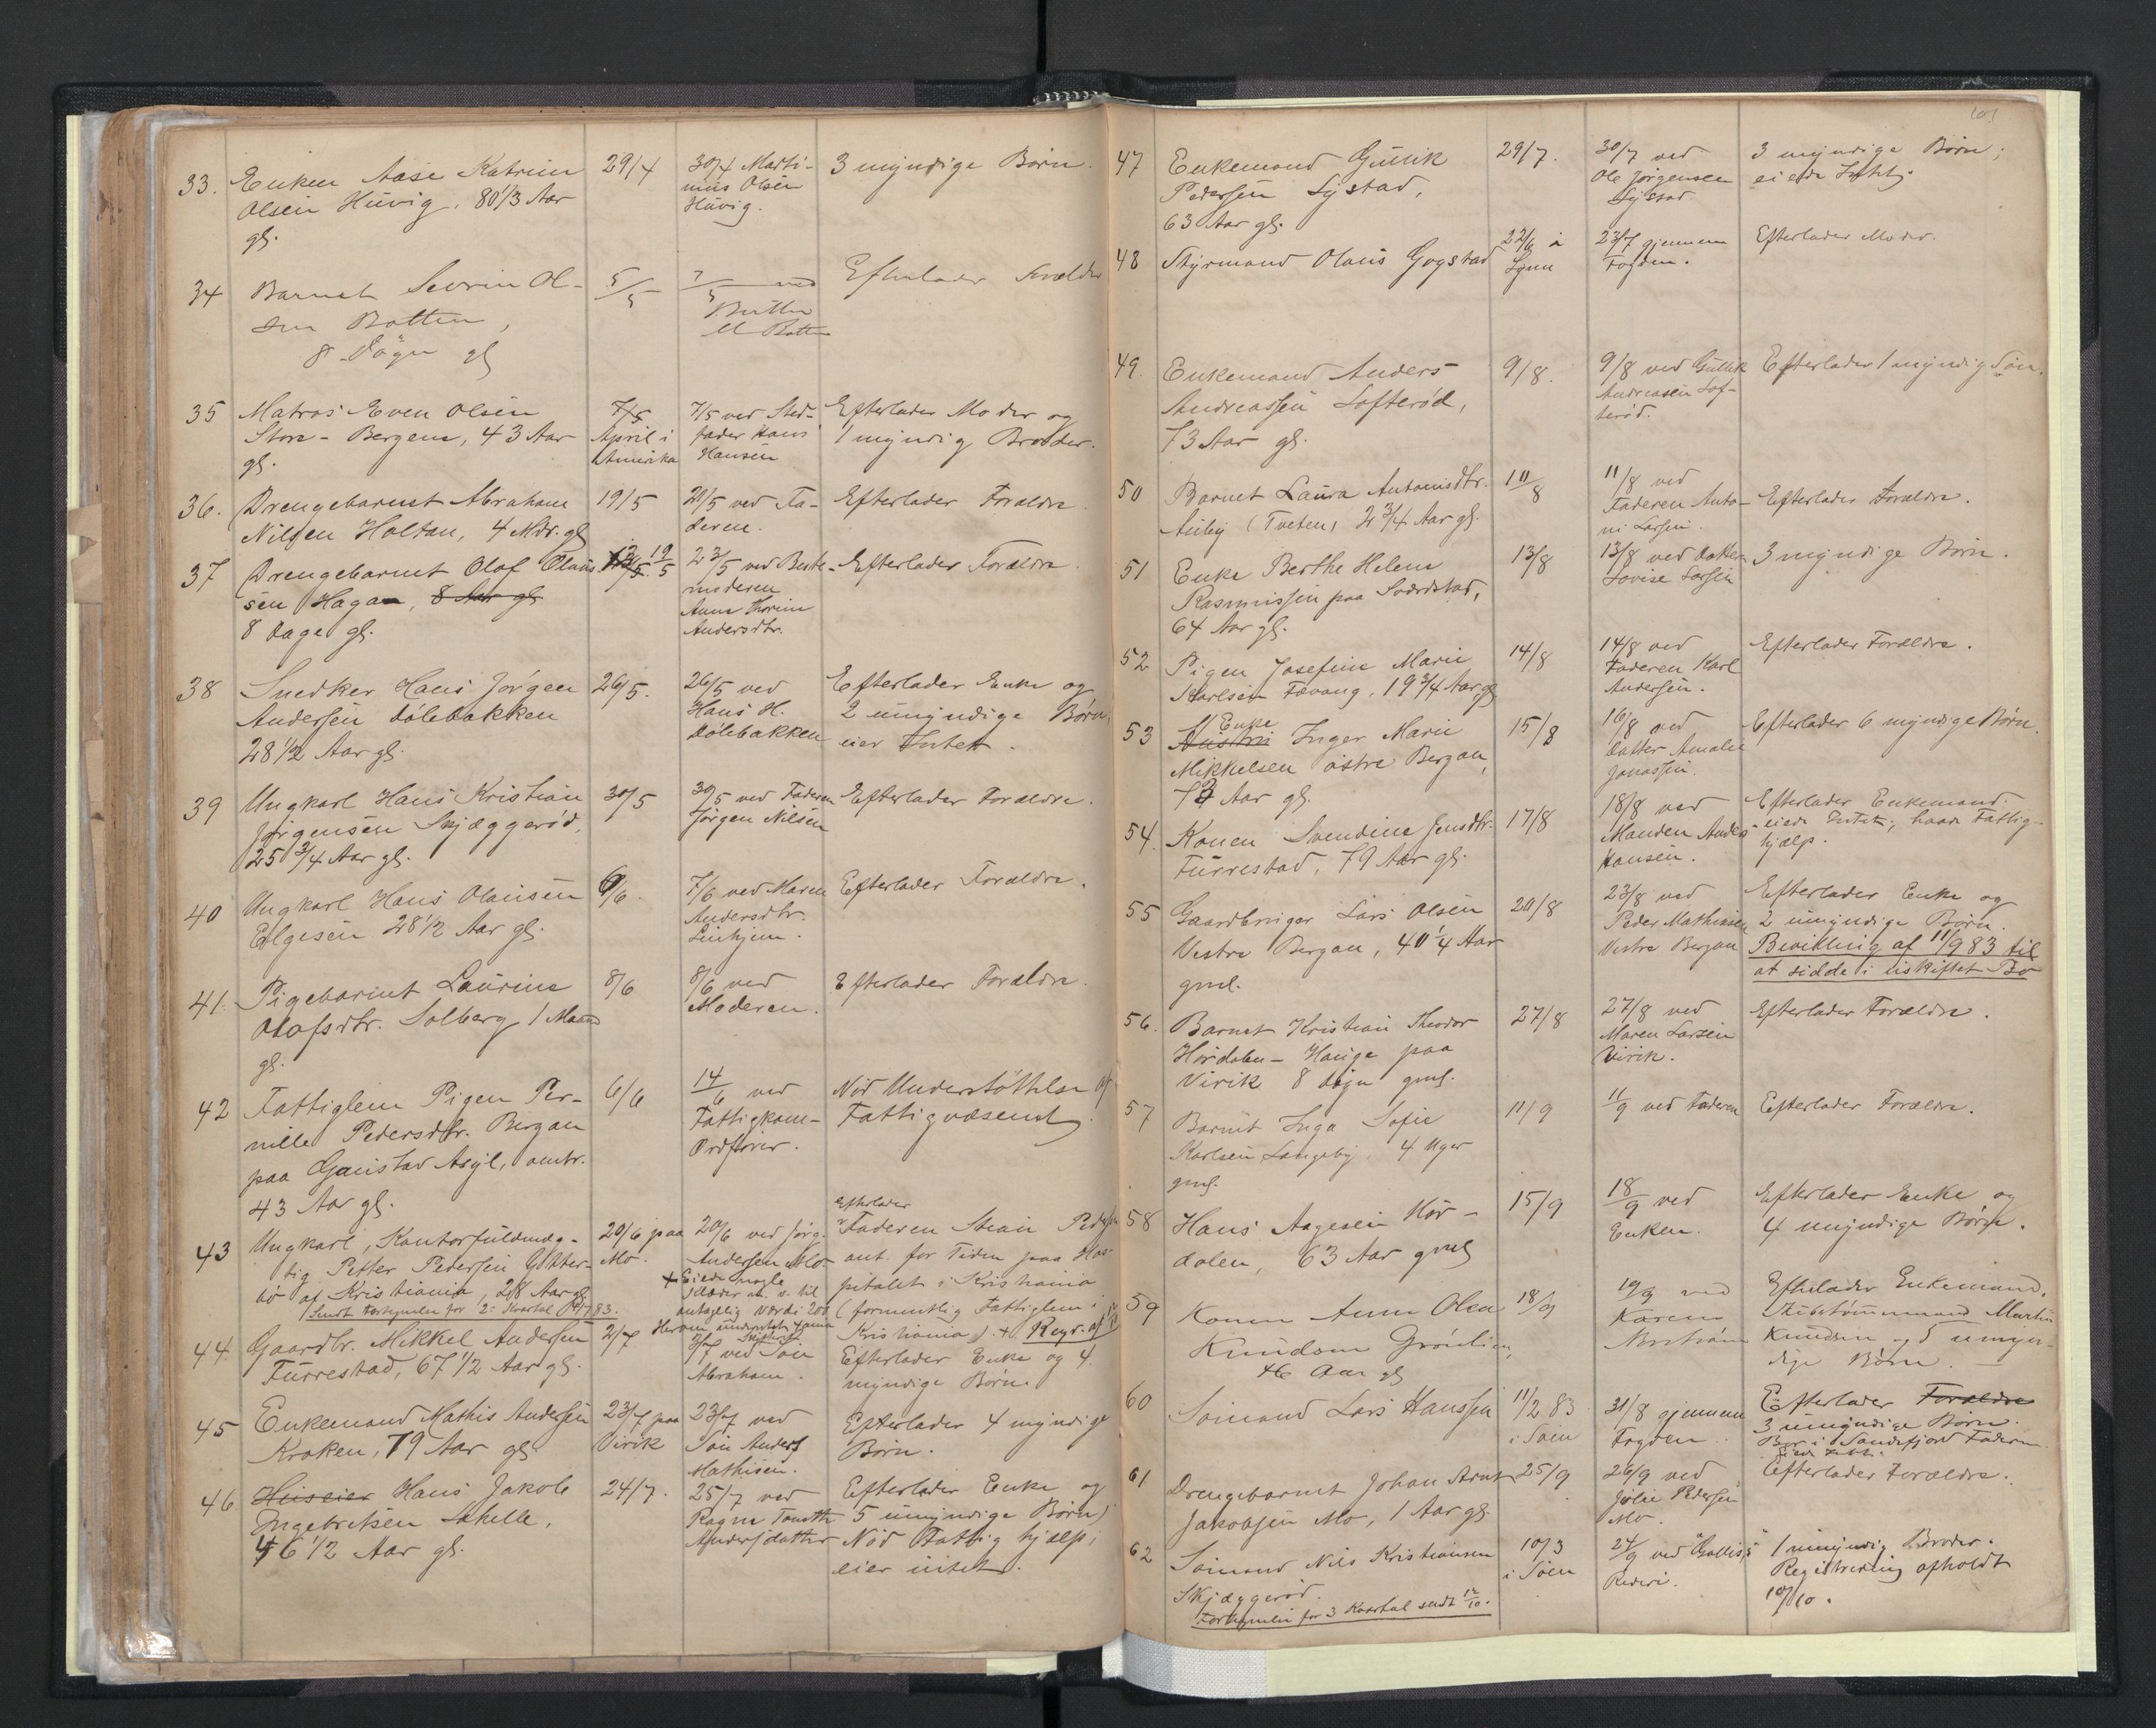 33. Enken Aase Katrine 29/4 30/4 Marti- 3 myndige Børn.
Olsen Huvig, 80 1/3 Aar nius Olsen
gl. Huvig.
34 Barnet Severin Ol- 5/5 7/5 ved Efterlader Forældre
sen Botten, M Botten
8 Døgn gl
35 Matros Even Olsen 7/5 7/5 ved Sted- Efterlader Moder og
Store-Bergan, 43 Aar April i fader Hans 1 myndig Broder.
gl. Amerika Hansen
36. Drengebarnet Abraham 19/5 21/5 ved Fa- Efterlader Forældre
Nilsen Holtan, 4 Mdr. gl deren.
37 Drengebarnet Olaf Olaus 19/5 23/5 ved Beste- Efterlader Forældre.
sen Hagan, 8 Aar gl moderen
8 Dage gl. Anne Thorine
Andersdtr.
38 Snedker Hans Jørgen 26/5. 26/5 ved Efterlader Enke og
Andersen Dølebakken Hans H. 2 umyndige Børn,
28 1/2 Aar gl. Dølebakken eier Intet.
39 Ungkarl Hans Kristian 30/5 30/5 ved Faderen Efterlader Forældre.
Jørgensen Skjæggerød, Jørgen Nilsen
25 3/4 Aar gl.
40 Ungkarl Hans Olausen 6/6. 7/6 ved Maren Efterlader Forældre.
Elgesen 28 1/2 Aar gl. Andersdtr.
41. Pigebarnet Laurine 8/6 8/6 ved Efterlader Forældre.
Olafsdtr. Solberg, 1 Maaned Moderen.
gl.
42 Fattiglem Pigen Per- 6/6 14/6 ved Nød Understøttelse af
nille Pedersdtr. Bergan Fattigkom- Fattigvæsenet
paa Gaustad Asyl, omtr. Ordfører.
43 Aar gl.
Efterlader
43 Ungkarl, Kontorfuldmæg- 20/6 paa 20/6 ved Jørg. Faderen Stian Pedersen
tig Petter Pedersen Mo. Andersen Mo ant. for Tiden paa Hos-
af Kristiania, 28 Aar gl + Eiede nogle pitalet i Kristiania
Sendt Fortegnelse for 2. Kvartal 83. Klæder m. v. til (formentlig Fattiglem i
antagelig Værdi 200 Kristiania). + Regr. af
44. Gaardbr. Mikkel Andersen 2/7 3/7 ved Søn Efterlader Enke og 4
Furrestad, 67 1/2 Aar gl. Abraham. myndige Børn
45 Enkemand Mathis Andersen 23/7 paa 23/7 ved Efterlader 4 myndige
Kroken, 79 Aar gl. Virik Søn Anders Børn.
Mathisen.
46 Huseier Hans Jakob 24/7. 25/7 ved Efterlader Enke og
Ingebretsen Lahelle, Ragne Tomette 5 umyndige Børn;
46 1/2 Aar gl. Andersdatter Nød Fattig hjælp;
eier intet.
101
47 Enkemand Gullik 29/7. 30/7 ved 3 myndige Børn;
Pedersen Lystad, Ole Jørgensen eiede Intet.
63 Aar gl. Lystad
48 Styrmand Olaus Gogstad 22/6 i 23/7 gjennem Efterlader Moder.
Lynn Fogden.
49. Enkemand Anders 9/8. 9/8 ved Gullik Efterlader 1 myndig Søn.
Andreassen Lofterød, Andreasen Lof-
73 Aar gl. terød.
50 Barnet Laura Antonisdtr. 11/8 11/8 ved Efterlader Forældre.
Auby (Tveten) 2 3/4 Aar gl. Faderen Anto-
ni Larsen.
51 Enke Berthe Helene 13/8 13/8 ved Datter 3 myndige Børn.
Rasmussen paa Sverdstad, Lovise Larsen
64 Aar gl.
52 Pigen Josefine Marie 14/8 14/8 ved Efterlader Forældre.
Karlsen Fevang, 19 3/4 Aar gl Faderen Karl
Andersen.
53 Enke Inger Marie 15/8 16/8 ved Efterlader 6 myndige Børn.
Mikkelsen østre Bergan, Datter Amalie
Aar gl. Jonassen.
54. Konen Svendine Jensdtr. 17/8 18/8 ved Efterlader Enkemand:
Furrestad, 79 Aar gl. Manden Anders eiede Intet; havde Fattig-
Hansen. hjælp.
55 Gaardbruger Lars Olsen 20/8 23/8 ved Efterlader Enke og
Vestre Bergan, 40 1/4 Aar Peder Mathissen 2 umyndige Børn.
gml. Vestre Bergan Bevilling af 11/9 83 til
at sidde i uskiftet Bo
56. Barnet Kristian Theodor 27/8 27/8 ved Efterlader Forældre.
Hørdalen-Hauge paa Maren Larsen
Virik 8 Døgn gml. Virik.
57 Barnet Inga Sofie 11/9 11/9 ved Faderen Efterlader Forældre.
Karlsen Langeby 4 Uger
gml.
58 Hans Aagesen Hør- 15/9 18/9 ved Efterlader Enke og
dalen, 63 Aar gml Enken. 4 myndige Børn.
59 Konen Anne Olea 18/9 19/9 ved Efterlader Enkemand,
Knudsen Grønli Karen Martin
46 Aar gl Knudsen og 5 umyn-
dige Børn.
60 Sømand Lars Hanssen 11/2 83. 31/8 gjennem Efterlader Forældre
i Søen Fogden. 3 umyndige Børn.
Bor i Sandefjord
61 Drengebarnet Johan Arnt 25/9 26/9 ved Efterlader Forældre.
Jakobsen Mo, 1 Aar gl. Julie Pedersen
Mo.
62 Sømand Nils Kristiansen 10/3 24/9 ved 1 umyndig Broder.
Skjæggerød. i Søen Rederi. Registrering afholdt
Fortegnelse for 3 Kvartal sendt 12/10. 10/10.